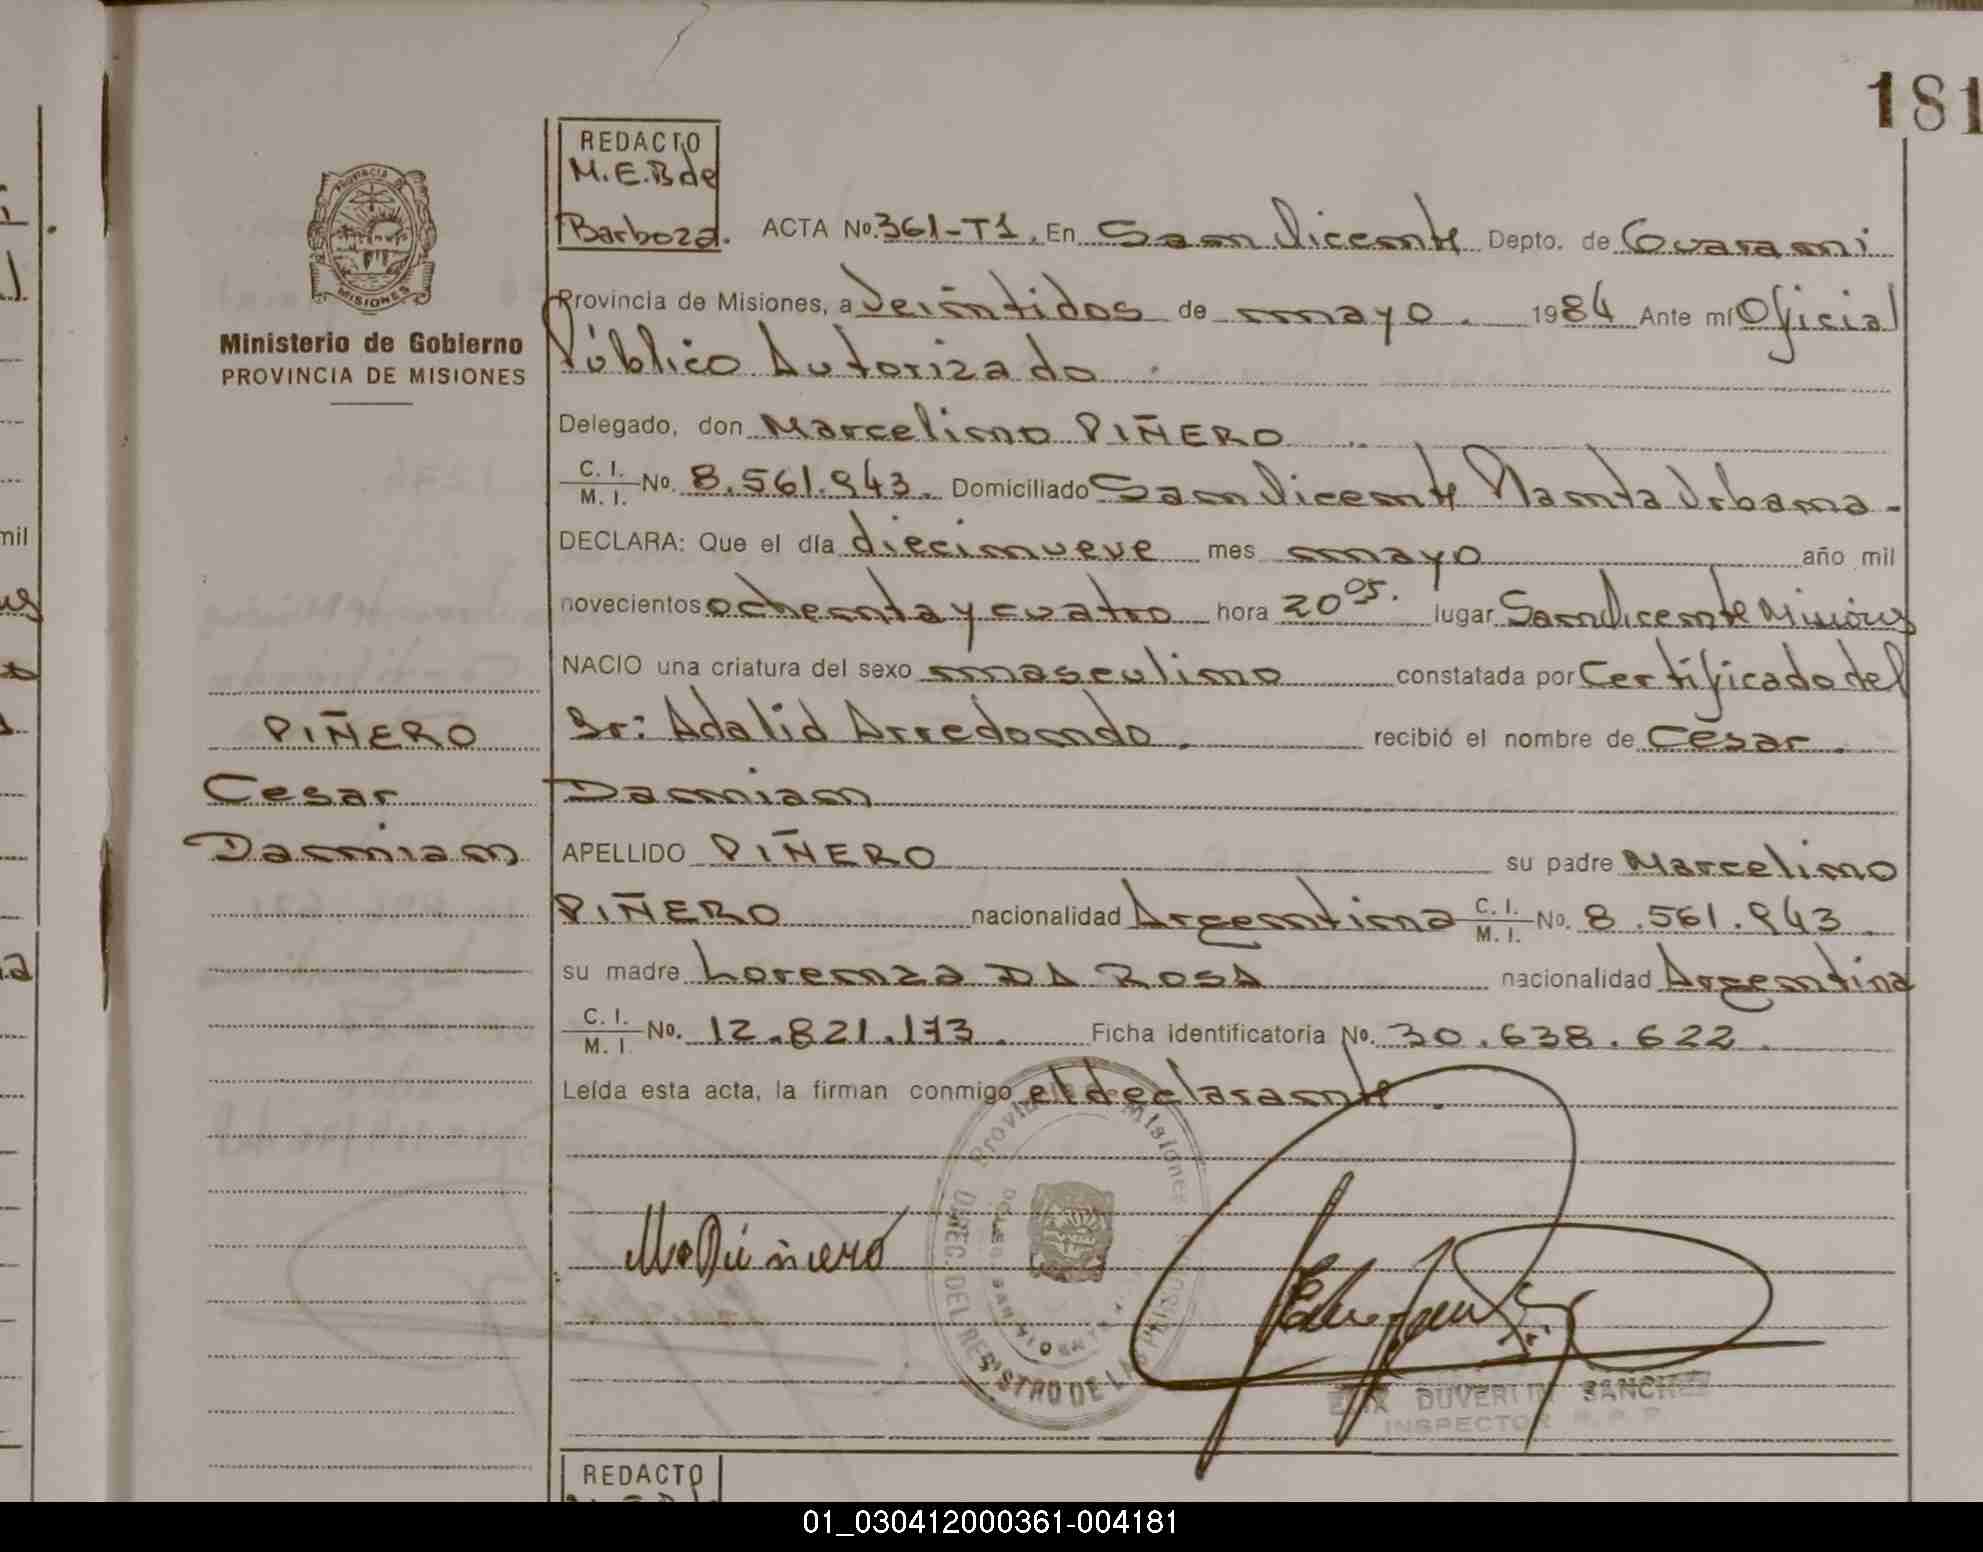 181
REDACTO
M.E.B de
Barboza.
PROVINCIA DE
MISIONES
Ministerio de Gobierno
PROVINCIA DE MISIONES
ACTA No. 361-T1. En San Vicente Depto. de Guarani
Provincia de Misiones, a Veintidos de mayo. 1984 Ante mí Oficial
Público Autorizado
Delegado, don Marcelino PIÑERO
C. I. / M. I. No. 8.561.943. Domiciliado San Vicente Planta Urbana-
DECLARA: Que el día diecinueve mes mayo año mil
novecientos ochenta y cuatro hora 20 05. lugar San Vicente Misiones
NACIO una criatura del sexo masculino constatada por Certificado del
Dr: Adalid Arredondo. recibió el nombre de Cesar.
Damian
APELLIDO PIÑERO su padre Marcelino
PIÑERO nacionalidad Argentina C. I. / M. I. No. 8.561.943
su madre Lorenza DA ROSA nacionalidad Argentina
C. I. / M. I. No. 12.821.173. Ficha identificatoria No. 30.638.622.
Leída esta acta, la firman conmigo el declarante.
PIÑERO
Cesar
Damian
Provincia de Misiones
DIREC. DEL REGISTRO DE LAS
SAN VICENTE
DUVERLIN SANCHEZ
INSPECTOR R. P. P.
REDACTO
mil
01_030412000361-004181